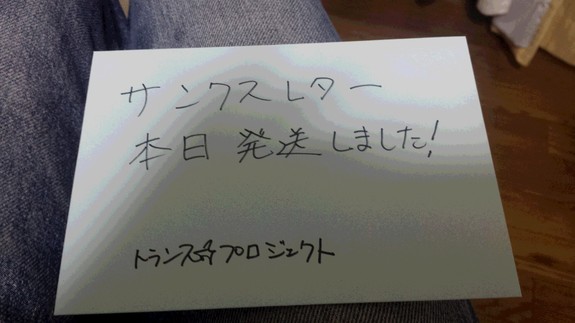 サンクスレター
本日発送しました!
トランス☆プロジェクト